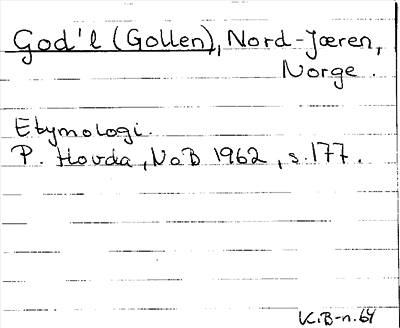 God'l (Gollen), Nord-Jæren,
Norge.
Etymologi.
P. Hovda, NoB 1962, s. 177.
K.B-n. 64